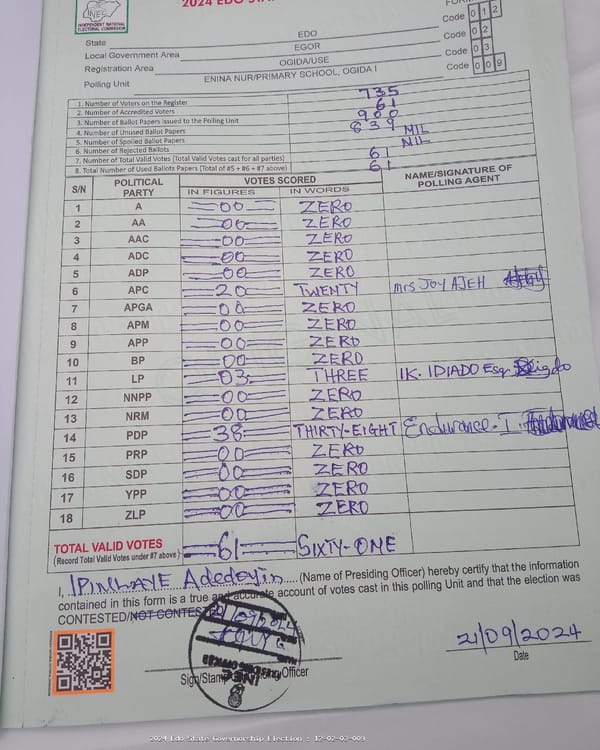 2024 EDO STA
INEC
INDEPENDENT NATIONAL
ELECTORAL COMMISSION
State EDO Code 0 1 2
Local Government Area EGOR Code 0 2
Registration Area OGIDA/USE Code 0 3
Polling Unit ENINA NUR/PRIMARY SCHOOL, OGIDA I Code 0 0 9
1. Number of Voters on the Register 735
2. Number of Accredited Voters 61
3. Number of Ballot Papers Issued to the Polling Unit 900
4. Number of Unused Ballot Papers 839
5. Number of Spoiled Ballot Papers NIL
6. Number of Rejected Ballots NIL
7. Number of Total Valid Votes (Total Valid Votes cast for all parties) 61
8. Total Number of Used Ballots Papers (Total of #5 + #6 + #7 above) 61
S/N POLITICAL PARTY VOTES SCORED NAME/SIGNATURE OF POLLING AGENT
IN FIGURES IN WORDS
1 A 00 ZERO
2 AA 00 ZERO
3 AAC 00 ZERO
4 ADC 00 ZERO
5 ADP 00 ZERO
6 APC 20 TWENTY Mrs JOY AJEH
7 APGA 00 ZERO
8 APM 00 ZERO
9 APP 00 ZERO
10 BP 00 ZERO
11 LP 03 THREE IK. IDIADO Esq
12 NNPP 00 ZERO
13 NRM 00 ZERO
14 PDP 38 THIRTY-EIGHT Endurance. I.
15 PRP 00 ZERO
16 SDP 00 ZERO
17 YPP 00 ZERO
18 ZLP 00 ZERO
TOTAL VALID VOTES 61 SIXTY-ONE
(Record Total Valid Votes under #7 above)
I, IPINLAYE Adedoyin (Name of Presiding Officer) hereby certify that the information
contained in this form is a true and accurate account of votes cast in this polling Unit and that the election was
CONTESTED/NOT CONTESTED
21/09/2024
Sign/Stamp Officer Date
INEC
PRESIDING OFFICER
2024 Edo State Governorship Election : 12-02-03-009